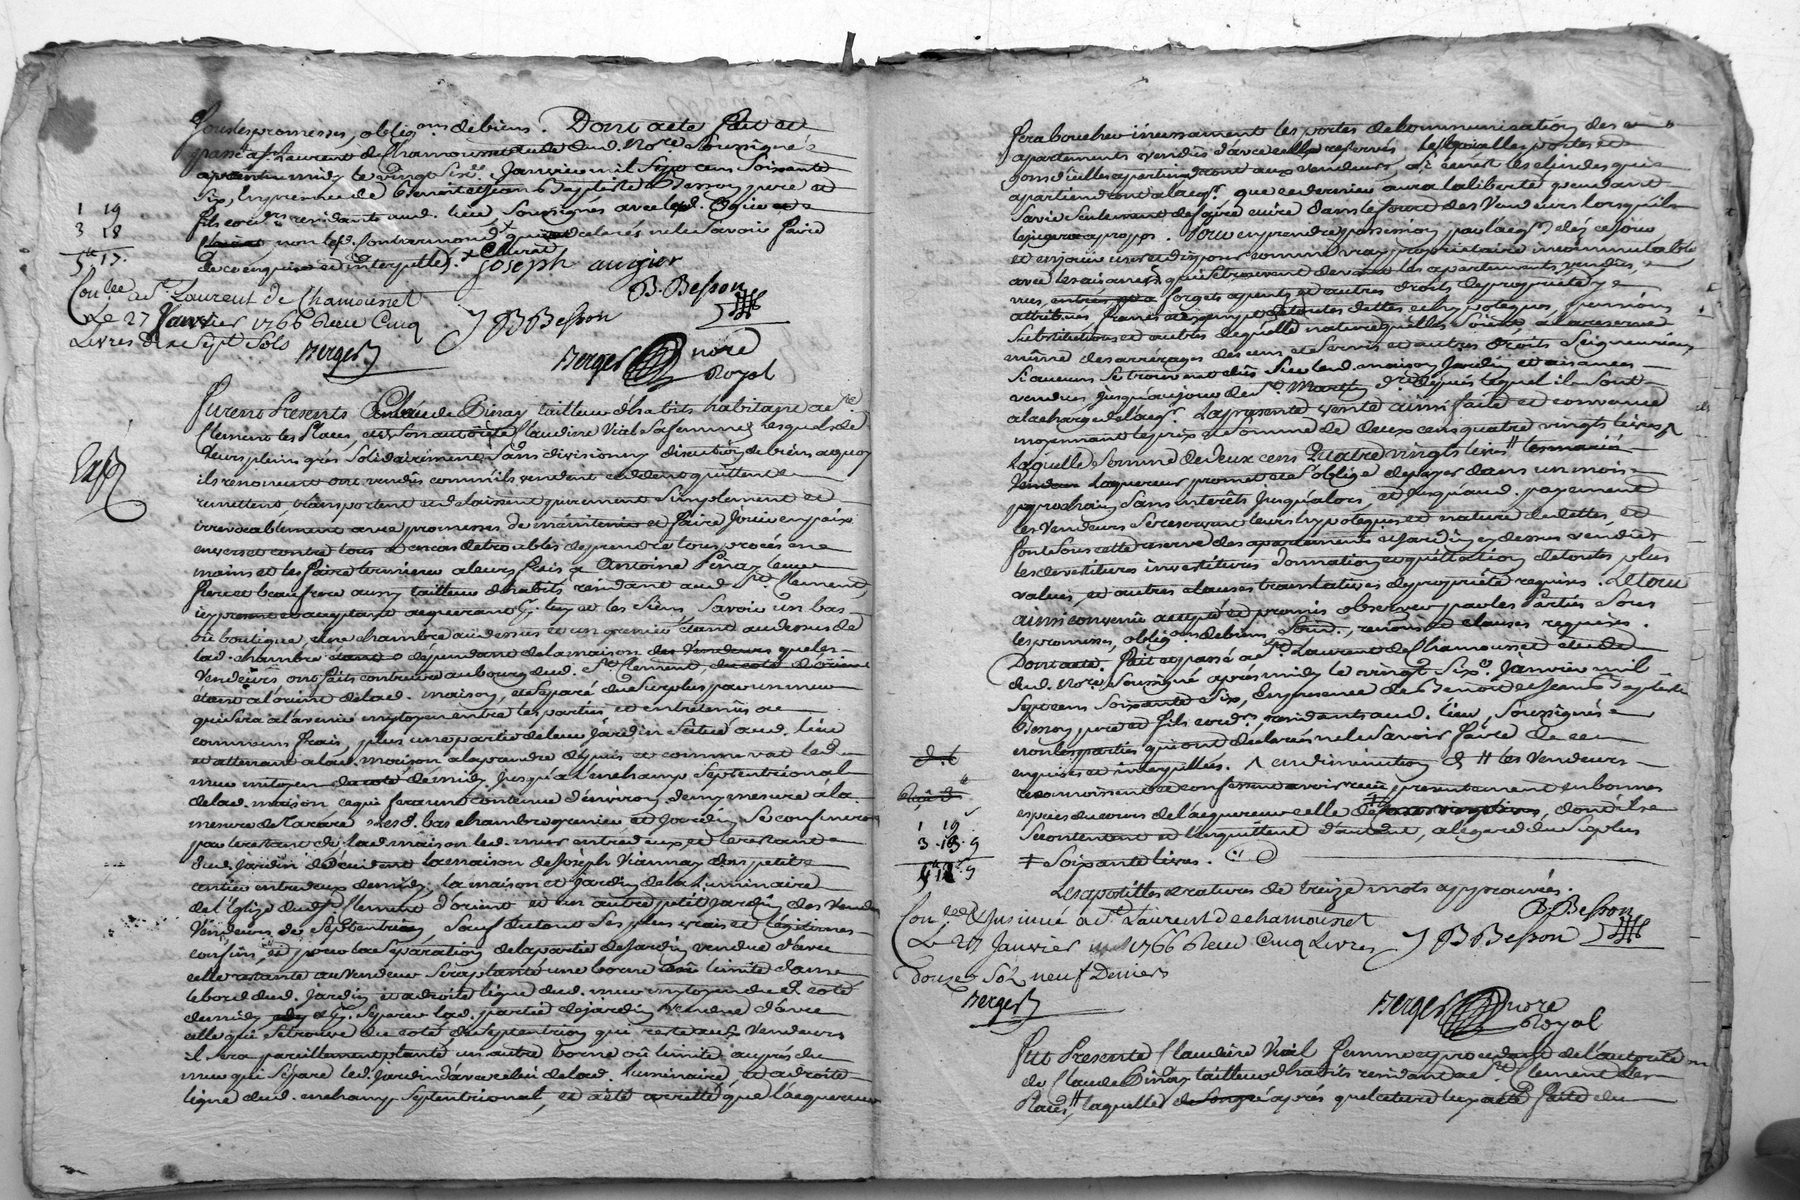 tous les promesses, obligons de biens. Dont acte fait et
passé a St. Laurent de Chamousset etude dud. Nore. soussigné
le vingt six. Janvier mil sept cens soixante
six, En presence de Benoit et Jean Baptiste Besson pere et
fils residants aud. lieu, soussignés avec led.
1 19
3 18
5 17.
non led. qui a declaré ne le savoir faire
de ce enquis et interpellé.
Joseph augier
B. Besson
J B Besson
Conlee a St. Laurent de Chamousset
Le 27 Janvier 1766 Reçu Cinq
Livres dix Sept Sols
Berger
Berger nore
Royal
Furent Presents Claude Pinay tailleur d'habits habitant a St.
Clement les Places, et de son autorité Claudine Vial sa femme lesquels de
leurs pleins grés solidairement sans division ny discution de biens a quoy
ils renoncent ont vendu comme ils vendent cedent quittent
remettent, transportent et delaissent purement simplement et
irrevocablement avec promesses de maintenir et faire jouir en paix
envers et contre tous et en cas de troubles de prendre tous procés en
mains et les faire terminer a leurs frais a Antoine Pinay leur
frere et beaufrere aussy tailleur d'habits residant aud. St. Clement,
icy present et acceptant acquerant pr. luy et les siens Savoir un bas
ou boutique, une chambre au dessus et un grenier étant au dessus de
lad. chambre dépendant de la maison que les
Vendeurs ont faits construire au bourg dud. St. Clement, du coté d'orient
étant a l'orient de lad. maison, et separé du surplus par un mur
qui sera a l'avenir mitoyen entre les parties et entretenus a
communs frais, plus une partie de leur jardin situé aud. lieu
et attenant a lad. maison a la prendre depuis et comme va led.
mur mitoyen du coté de midy jusqu'a l'enchamp septentrional
de lad. maison ce qui fera une contenue d'environ demy mesure a la
mesure de Tarare. lesd. bas chambre grenier et jardin se confinent
par le restant de lad. maison led. mur entre deux et le restant
dud. jardin d'occident la maison de Joseph Viannay un petit
sentier entre deux de midy, la maison et jardin de la Luminaire
de l'Eglise dud. St. Clement d'orient et un autre petit jardin des
Vendeurs de septentrion, sauf du tout ses plus vrais et legitimes
confins, et pour la separation de la partie de jardin vendue d'avec
celle restante au vendeur sera planté une borne ou limite dans
le bord dud. jardin et a droite ligne dud. mur mitoyen du coté
de midy pr. separer lad. partie de jardin vendue d'avec
celle qui se trouve du coté de septentrion qui reste aux vendeurs
il sera pareillement planté un autre borne ou limite auprés du
mur qui separe led. jardin d'avec celui de lad. luminaire, et a droite
ligne dud. enchamp septentrional, et a eté arretté que l'acquereur
fera boucher incessament les portes de communication des
apartements vendus d'avec celles reservés, lesquelles portes et
gons d'icelles apartiendront aux vendeurs,
apartiendront a l'acqr. que ce dernier aura la liberté pendant
sa vie seulement de faire cuire dans le four des Vendeurs lorsqu'il
le jugera a propos. Pour en prendre possession par l'acqr. dés ce jour
et en jouir user et disposer comme vray proprietaire incommutable
avec les aisances qui se trouvent devant les apartements vendus,
vues, entrées forgets apents et autres droits de propriété y
attribués francs et exempts de toutes dettes et hypoteques, pensions
substitutions et autres de quelle nature qu'elles soient, a la reserve
même des arrerages des cens et servis et autres droits seigneuriaux
si aucuns se trouvent dus sur led. maison, jardin et aisances
vendus jusqu'aujour de St. Martin der. depuis lequel ils sont
a la charge de l'acqr. La presente vente ainsi faite et convenue
moyennant le prix et somme de deux cens quatre vingts livres
Laquelle somme de deux cens quatre vingts livres
l'aquereur promet et s'oblige de payer dans un mois
prochain sans interêts jusqu'alors, et jusqu'aud. payement
les Vendeurs se reservent leurs hypoteques et nature de dettes, et
sont sous cette reserve des apartements et jardin cy dessus vendus
les devestitures investitures donnation et quittation de toutes plus
values, et autres clauses translatives de propriété requises. Le tout
ainsi convenu accepté et promis observer par les Parties sous
les promesses, obligons de biens, renons. et clauses requises.
Dont acte. Fait et passé a St. Laurent de Chamousset etude
dud. Nore. soussigné aprés midy le vingt six. Janvier mil
sept cens soixante six, En presence de Benoit et Jean Baptiste
Besson pere et fils residants aud. lieu, soussignés
non les parties qui ont declaré ne le savoir faire de ce
enquises et interpellées. en diminution les Vendeurs
reconnoissent et confessent avoir reçu presentement en bonnes
especes du cours de l'acquereur celle de dont ils se
se contentent et l'en quittent d'autant, a l'egard du surplus
1 19
3 13 9
5 12 9
soixante livres.
Les apostilles et ratures de treize mots approuvés.
B. Besson
J B Besson
Conlee & Insinué a St. Laurent de chamousset
Le 27 Janvier 1766 Reçu Cinq Livres
Douze Sols neuf Deniers
Berger
Berger nore
Royal
Fut Presente Claudine Vial femme et procedant de l'autorité
de Claude Pinay tailleur d'habits residant a St. Clement les
Places, laquelle aprés que lecture luy a eté faite du